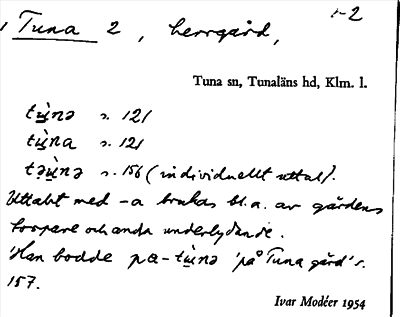 1-2
Tuna 2, herrgård,
Tuna sn, Tunaläns hd, Klm. l.
tu̱̇nə s. 121
tu̱̇na s. 121
təu̱̇nə s. 156 (individuellt uttal).
Uttalet med -a brukas bl.a. av gårdens
torpare och andra underlydande.
'Han bodde pa-tu̱̇nə 'på Tuna gård' s.
157.
Ivar Modéer 1954